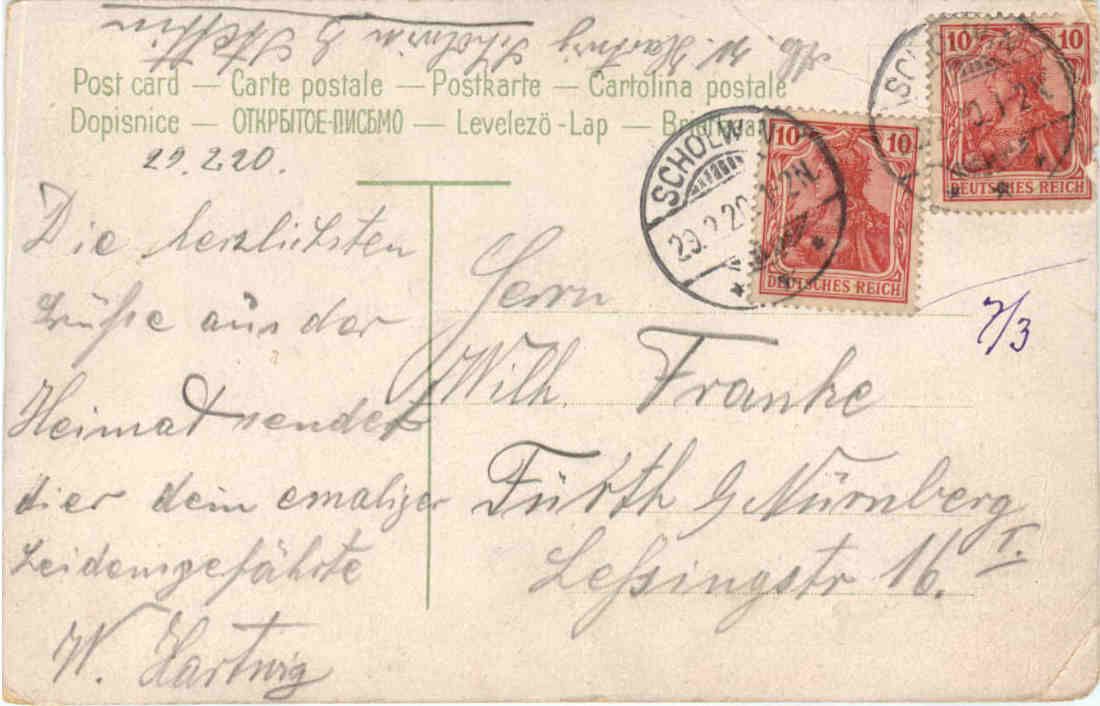 Ab. W. Hartwig Scholwin b Stettin
Post card — Carte postale — Postkarte — Cartolina postale
Dopisnice — ОТКРЫТОЕ-ПИСЬМО — Levelező-Lap —
29.2.20.
Die herzlichsten
Grüße aus der
Heimat sendet
dier dein emaliger
Leidensgefährte
W. Hartwig
10 10
DEUTSCHES REICH
10 10
DEUTSCHES REICH
SCHOLWIN
29.2.20. 1-2N.
7/3
Herrn
Wilh. Franke
Fürth b/ Nürnberg
Leßingstr 16. I.